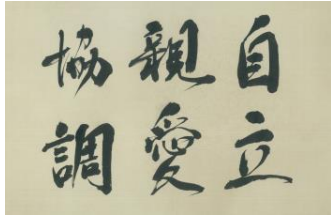 自立
親愛
協調